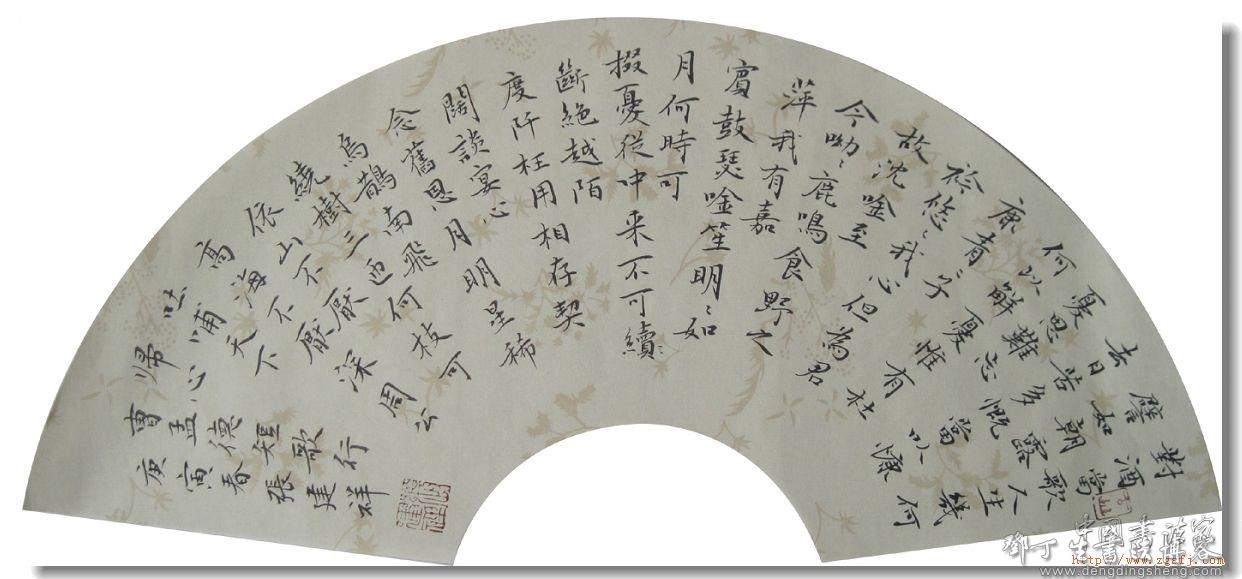 對酒當歌人生幾何
譬如朝露
去日苦多慨當以慷
憂思難忘
何以解憂惟有杜
康青〻子
衿悠〻我心但為君
故沈唫至
今呦〻鹿鳴食野之
萍我有嘉
賓鼓瑟唫笙明〻如
月何時可
掇憂從中来不可續
斷絕越陌
度阡枉用相存契
闊談宴心
念舊恩月明星稀
烏鵲南飛
繞樹三匝何枝可
依山不厭
高海不厭深周公
吐哺天下
歸心
曹孟德短歌行
庚寅春張建祥
http://www.zgsfj.com
www.dengdingsheng.com